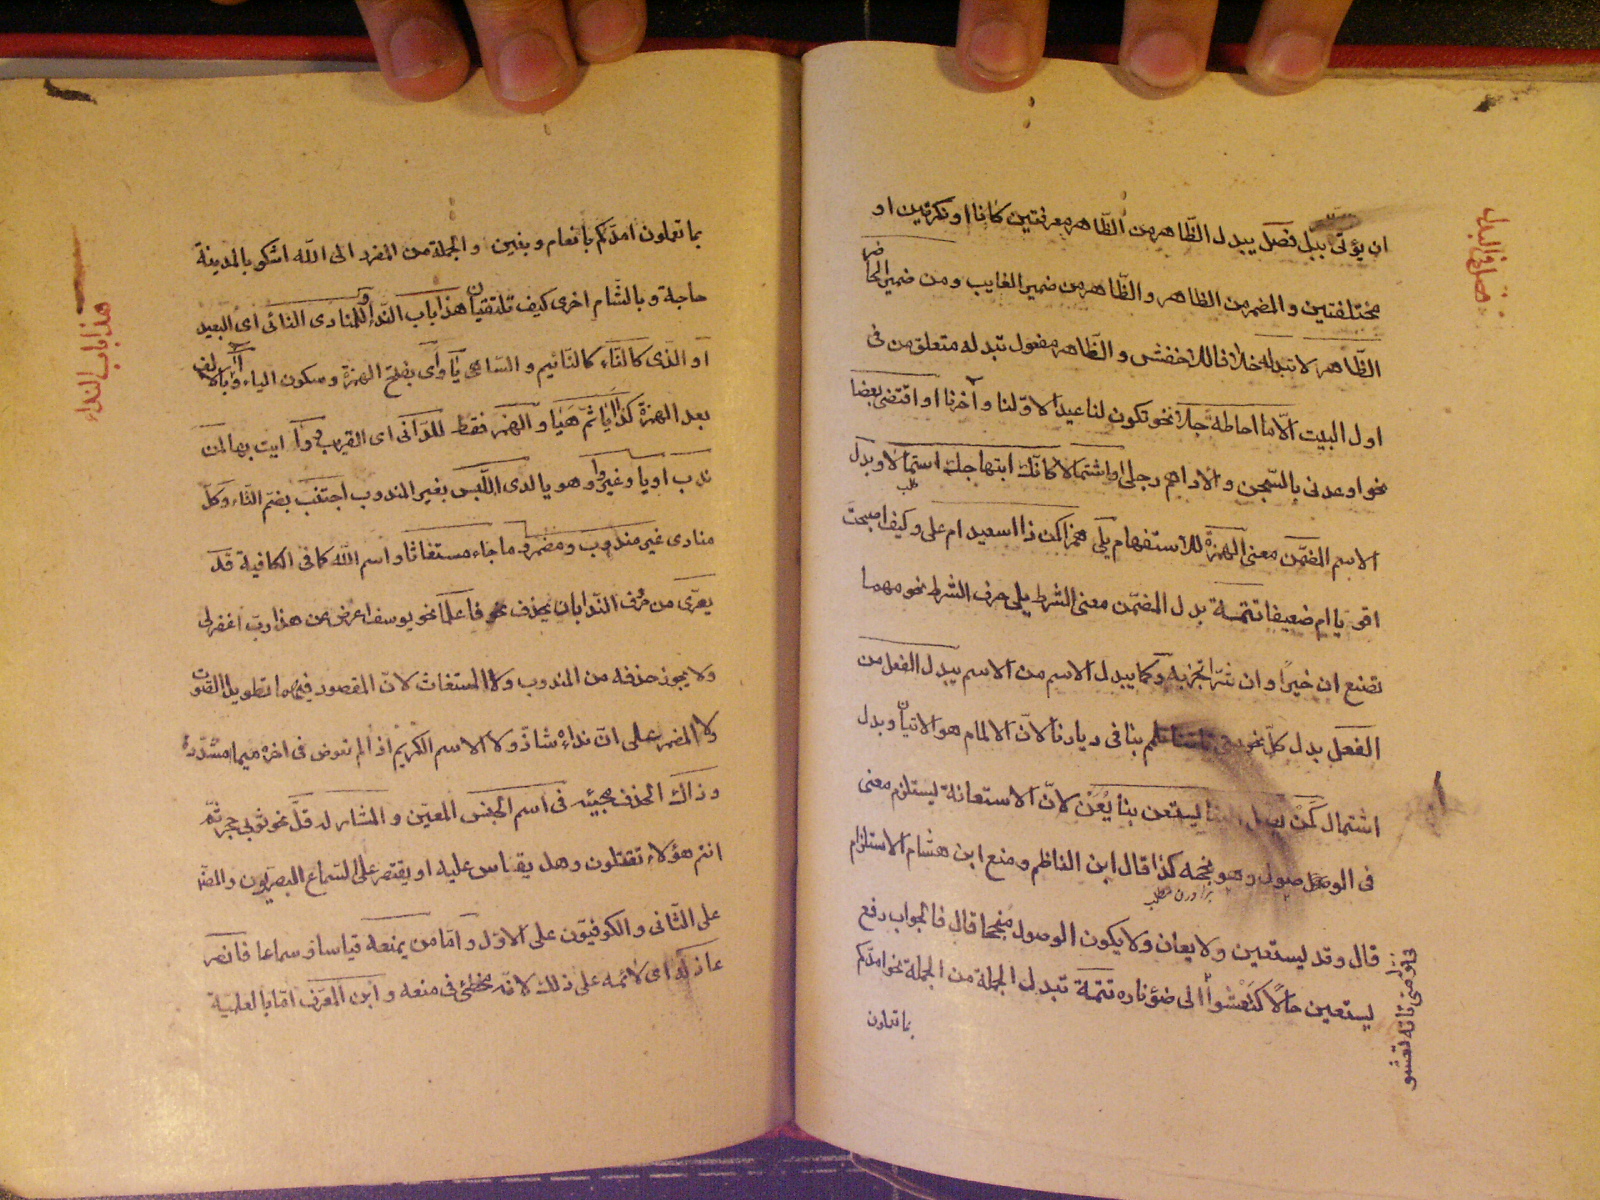 فصل في البدل
ان يؤتى ببل فصل يبدل الظاهر من الظاهر معرفتين كانا او نكرتين او
مختلفتين والمضمر من الظاهر والظاهر من ضمير الغايب ومن ضمير الحاضر
الظاهر لا تبدله خلافا للاخفش والظاهر مفعول تبدله متعلق من في
اول البيت الا ما احاطة جلا نحو تكون لنا عيدا لاولنا وآخرنا او اقتضى بعضا
نحو اوعدنى بالسجن والاداهم رجلى او اشتمالا كانك ابتهاجك استمالا وبدل
الاسم المضمن معنى الهمزة للاستفهام يلى همزا كمن ذا اسعيد ام على وكيف اصبحت
اقويا ام ضعيفا تتمة بدل المضمن معنى الشرط يلى حرف الشرط نحو مهما
تصنع ان خيرا وان شرا تجز به وكما يبدل الاسم من الاسم يبدل الفعل من
الفعل بدل كل نحو متى تاتنا تلمم بنا فى ديارنا لان الالمام هو الاتيان وبدل
اشتمال كمن يصل الينا يستعن بنا يعن لان الاستعانة يستلزم معنى
فى الوصول وهو نجحه كذا قال ابن الناظم ومنع ابن هشام الاستلزام
قال وقد يستعين ولا يعان ولا يكون الوصول منجحا قال فالجواب رفع
يستعين حالا كتعشوا الى ضؤ ناره تتمة تبدل الجملة من الجملة نحو امدكم
بما تعلمون
هذا باب النداء
بما تعلمون امدكم بانعام وبنين والجملة من المفرد الى الله اشكو بالمدينة
حاجة وبالشام اخرى كيف تلتقيان هذا باب النداء وللمنادى النائى اى البعيد
او الذى كالناء كالنائيم والساهى يا واى بفتح الهمزة وسكون الياء وآ بالالف
بعد الهمزة كذا ايا ثم هيا والهمز فقط للدانى اى القريب ووا ايت بها لمن
ندب او يا وغير وا وهو يا لدى اللبس بغير المندوب اجتنب بضم التاء وكل
منادى غير مندوب ومضمر وما جاء مستغاثا واسم الله كما فى الكافية قد
يعرى من حرف الندا بان يحذف نحو فاعلما نحو يوسف اعرض عن هذا رب اغفر لى
ولا يجوز حذفه من المندوب ولا المستغاث لان المقصود فيهما تطويل الصوت
ولا المضمر على ان نداءه شاذ ولا الاسم الكريم اذا لم تعوض فى اخره ميما مشددة
وذاك الحذف مجيئه فى اسم الجنس المعين والمشار له قل نحو ثوبي حجر ثم
انتم هؤلاء تقتلون وهل يقاس عليه او يقتصر على السماع البصريون والمص
على الثانى والكوفيون على الاول واما من يمنعه قياسا وسماعا فانصر
عاذله اى لائمه على ذلك لانه مخطئ فى منعه وابن المعرف اما بالعلمية